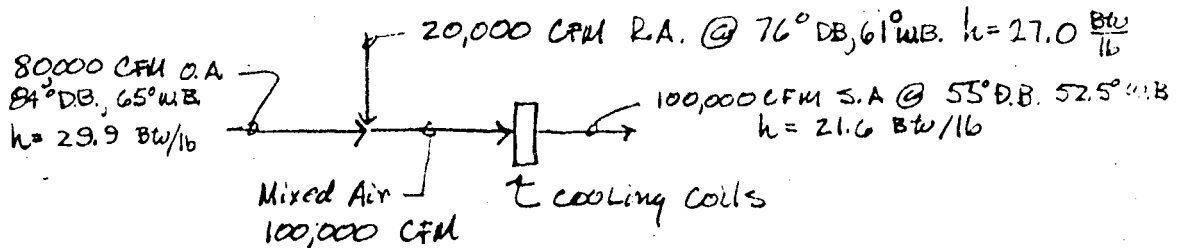 20,000 CFM R.A. @ 76° DB, 61° W.B. h = 27.0 Btu/lb
80,000 CFM O.A.
84° D.B., 65° W.B.
h = 29.9 Btu/lb
100,000 CFM S.A @ 55° D.B. 52.5° W.B
h = 21.6 Btu/lb
Mixed Air
100,000 CFM
cooling coils